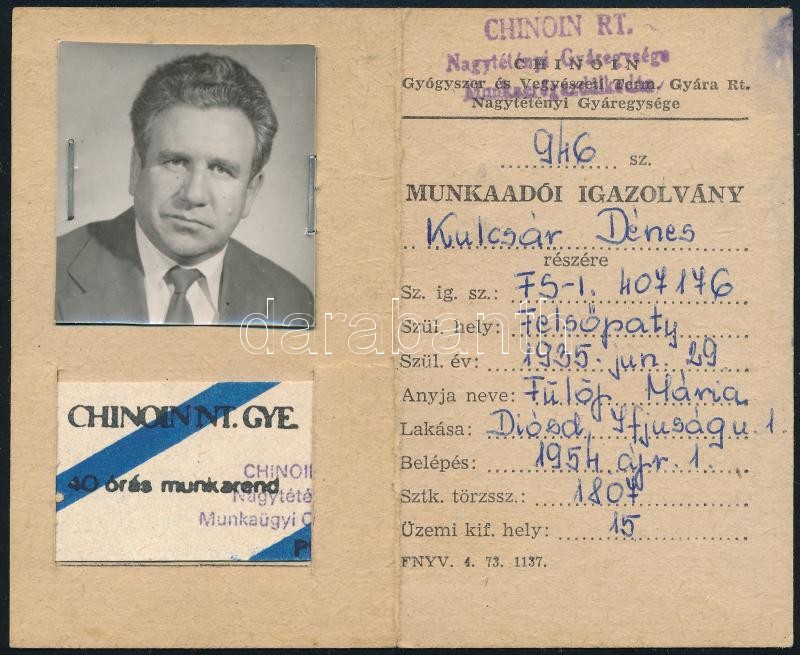 CHINOIN NT. GYE.
40 órás munkarend
CHINOI
Nagytété
Munkaügyi O
P
CHINOIN RT.
Nagytétényi Gyáregysége
CHINOIN
Gyógyszer és Vegyészeti Term. Gyára Rt.
Nagytétényi Gyáregysége
946 sz.
MUNKAADÓI IGAZOLVÁNY
Kulcsár Dénes
részére
Sz. ig. sz.: FS-I. 407176
Szül. hely: Felsőpaty
Szül. év: 1935. jun. 29.
Anyja neve: Fülöp Mária
Lakása: Diósd, Ifjuság u. 1.
Belépés: 1954. ápr. 1.
Sztk. törzssz.: 1807
Üzemi kif. hely: 15
FNYV. 4. 73. 1137.
darabanth